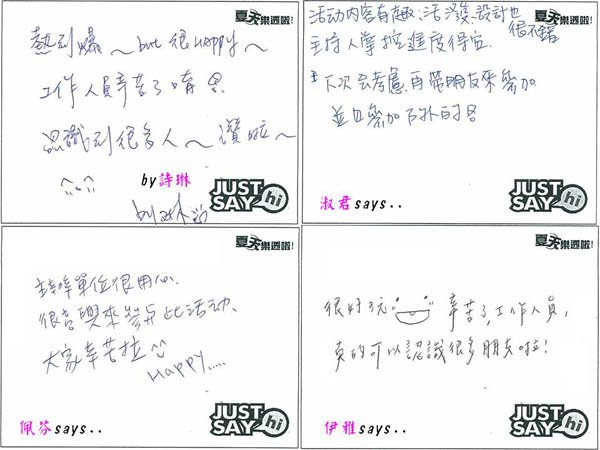 夏天樂透啦!
熱到爆～but 很Happy～
工作人員辛苦了唷
認識到很多人～讚啦～
by詩琳
JUST
SAY hi
活動內容有趣、活潑、設計也
很不錯
主持人掌控進度得宜
下次會考慮再帶朋友來參加
並且參加戶外的
淑君says..
JUST
SAY hi
夏天樂透啦!
主辦單位很用心.
很高興來參與此活動.
大家辛苦拉 ^^
Happy.....
佩芬says..
JUST
SAY hi
夏天樂透啦!
很好玩 辛苦了,工作人員,
真的可以認識很多朋友啦!
伊雅says..
JUST
SAY hi